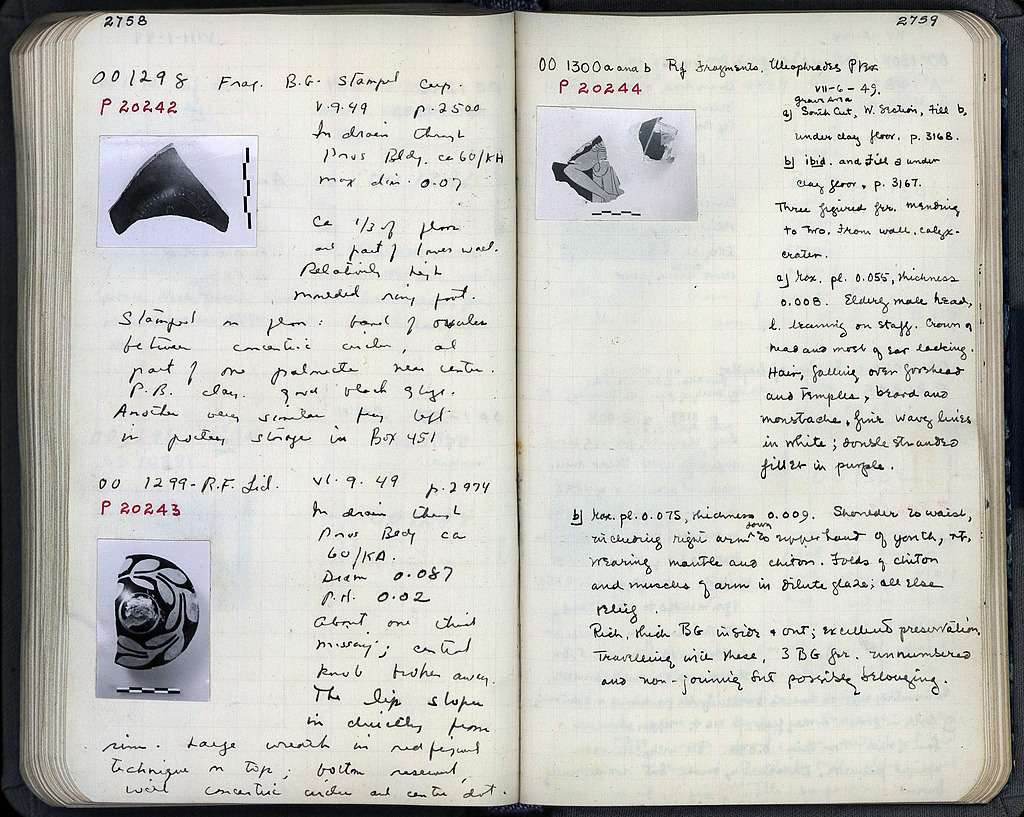 2758
OO 1298 Frag. B.G. Stamped Cup.
P 20242
V.9.49 p.2500
In drain thrust
Poros Bldg. ca 60/KA
max dim. 0.07
Ca 1/3 of floor
and part of lower wall.
Relatively high
moulded ring foot.
Stamped on floor: band of ovules
between concentric circles, and
part of one palmette near center.
P.B. clay. good black glaze.
Another very similar frag left
in pottery storage in Box 451
OO 1299 - R.F. Lid.
P 20243
VI.9.49 p.2974
In drain thrust
Poros Bldg ca
60/KA.
Diam 0.087
P.H. 0.02
About one third
missing; central
knob broken away.
The lip slopes
in directly from
rim. Large wreath in red figured
technique on top; bottom reserved,
with concentric circles and center dot.
2759
OO 1300 a and b Rf Fragments, Kleophrades P
P 20244
VII-6-49.
grave area
a) South Cut, W. Section, Fill b,
under clay floor, p. 3168.
b) ibid. and Fill a under
clay floor, p. 3167.
Three figured frr. mending
to two. From wall, calyx-
crater.
a) Max. pl. 0.055, thickness
0.008. Elderly male head,
l. leaning on staff. Crown of
head and most of ear lacking.
Hair, falling over forehead
and temples, beard and
moustache, fine wavy lines
in white; double stranded
fillet in purple.
b) Max. pl. 0.075, thickness 0.009. Shoulder to waist,
down
including right arm ^ to upper hand of youth, rt.,
wearing mantle and chiton. Folds of chiton
and muscles of arm in dilute glaze; all else
relief
Rich, thick BG inside & out; excellent preservation.
Travelling with these, 3 BG frr. unnumbered
and non-joining but possibly belonging.